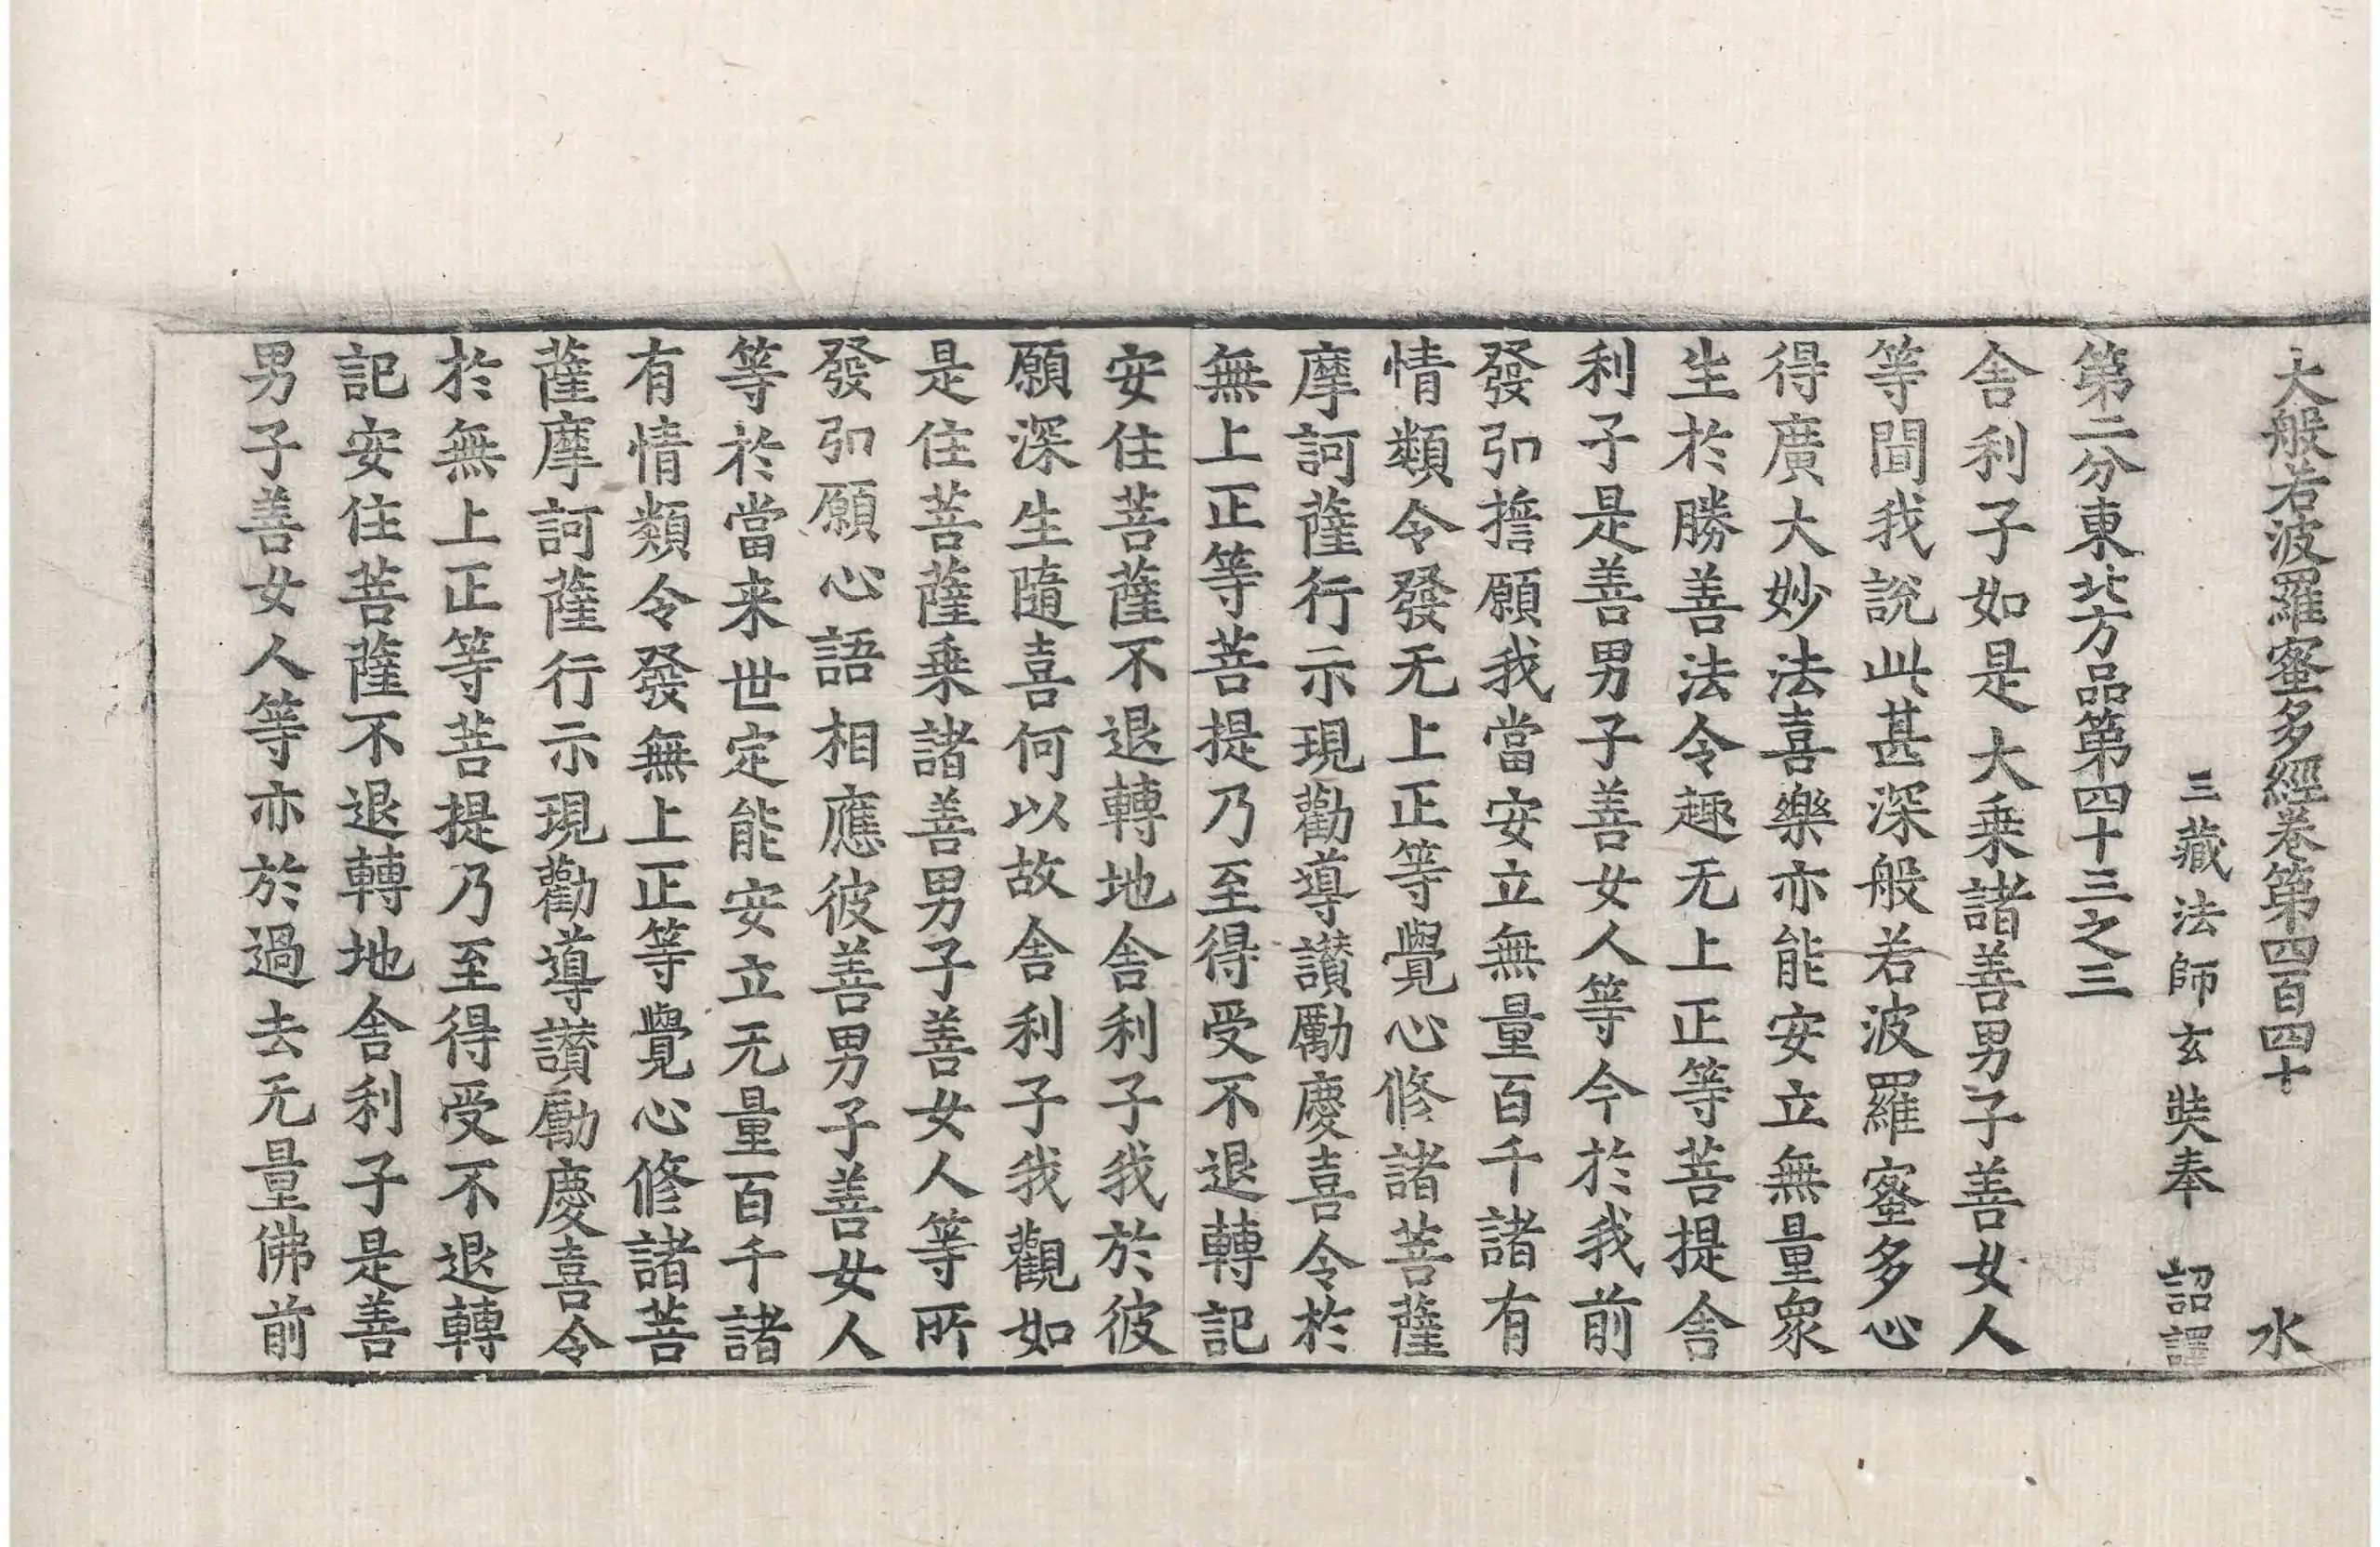 大般若波羅蜜多經卷第四百四十 水
三藏法師玄奘奉 詔譯
第二分東北方品第四十三之三
舍利子如是大乗諸善男子善女人
等聞我說此甚深般若波羅蜜多心
得廣大妙法喜樂亦能安立無量衆
生於勝善法令趣无上正等菩提舍
利子是善男子善女人等今於我前
發弘擔願我當安立無量百千諸有
情類令發无上正等覺心修諸菩薩
摩訶薩行示現勸導讃勵慶喜令於
無上正等菩提乃至得受不退轉記
安住菩薩不退轉地舍利子我於彼
願深生隨喜何以故舍利子我觀如
是住菩薩乗諸善男子善女人等所
發弘願心語相應彼善男子善女人
等於當来世定能安立无量百千諸
有情類令發無上正等覺心修諸菩
薩摩訶薩行示現勸導讃勵慶喜令
於無上正等菩提乃至得受不退轉
記安住菩薩不退轉地舍利子是善
男子善女人等亦於過去无量佛前